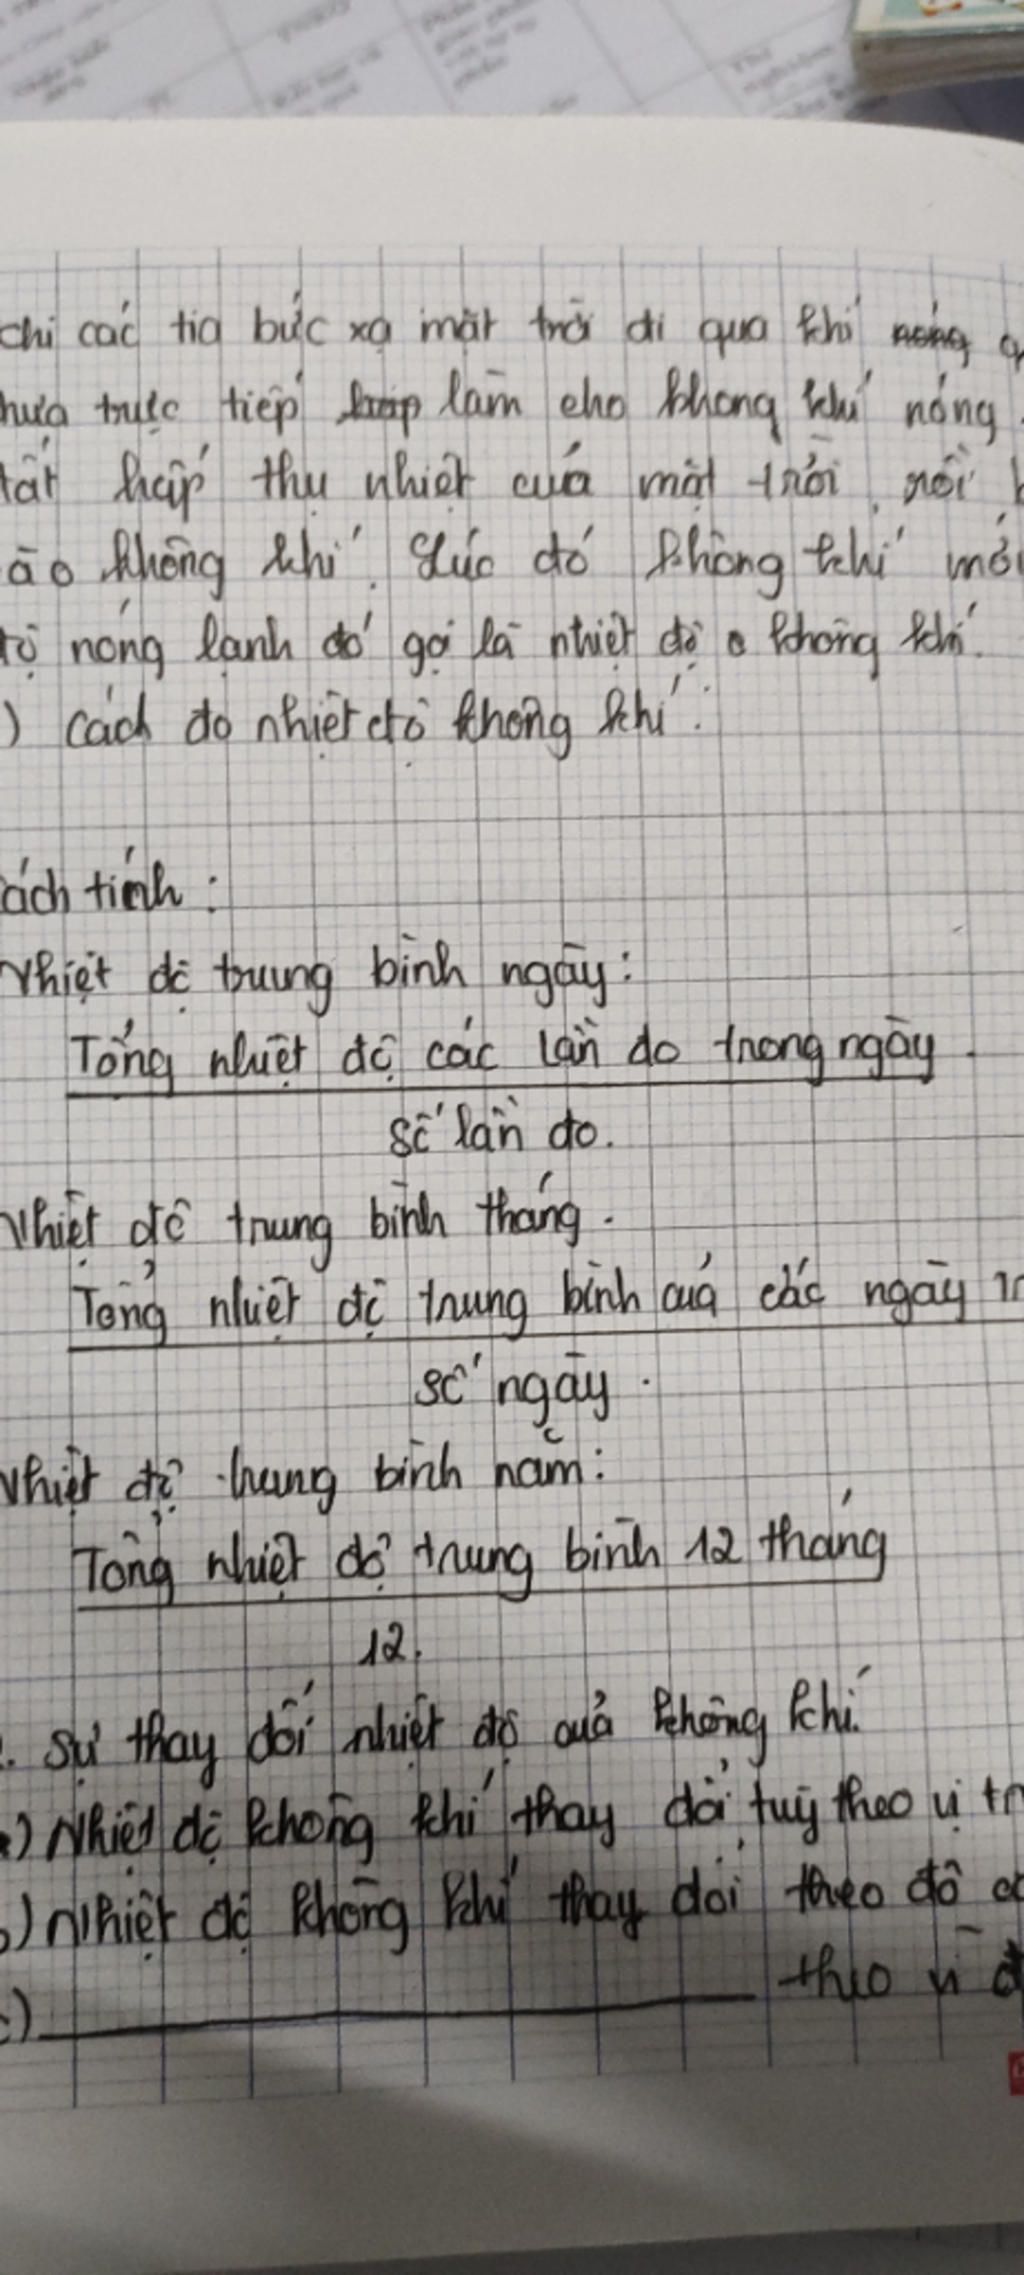 chi các tia bức xạ mặt trời đi qua khí
trực tiếp làm cho không khí nóng
hấp thụ nhiệt của mặt trời, rồi
không khí. Lúc đó không khí mới
nóng lạnh đó gọi là nhiệt độ không khí.
) cách đo nhiệt độ không khí:
ách tính:
Nhiệt độ trung bình ngày:
Tổng nhiệt độ các lần đo trong ngày.
số lần đo.
Nhiệt độ trung bình tháng.
Tổng nhiệt độ trung bình của các ngày
số ngày.
Nhiệt độ trung bình năm:
Tổng nhiệt độ trung bình 12 tháng
12.
. Sự thay đổi nhiệt độ của không khí.
) Nhiệt độ không khí thay đổi tuỳ theo vị
b) Nhiệt độ không khí thay đổi theo độ
c) theo vĩ